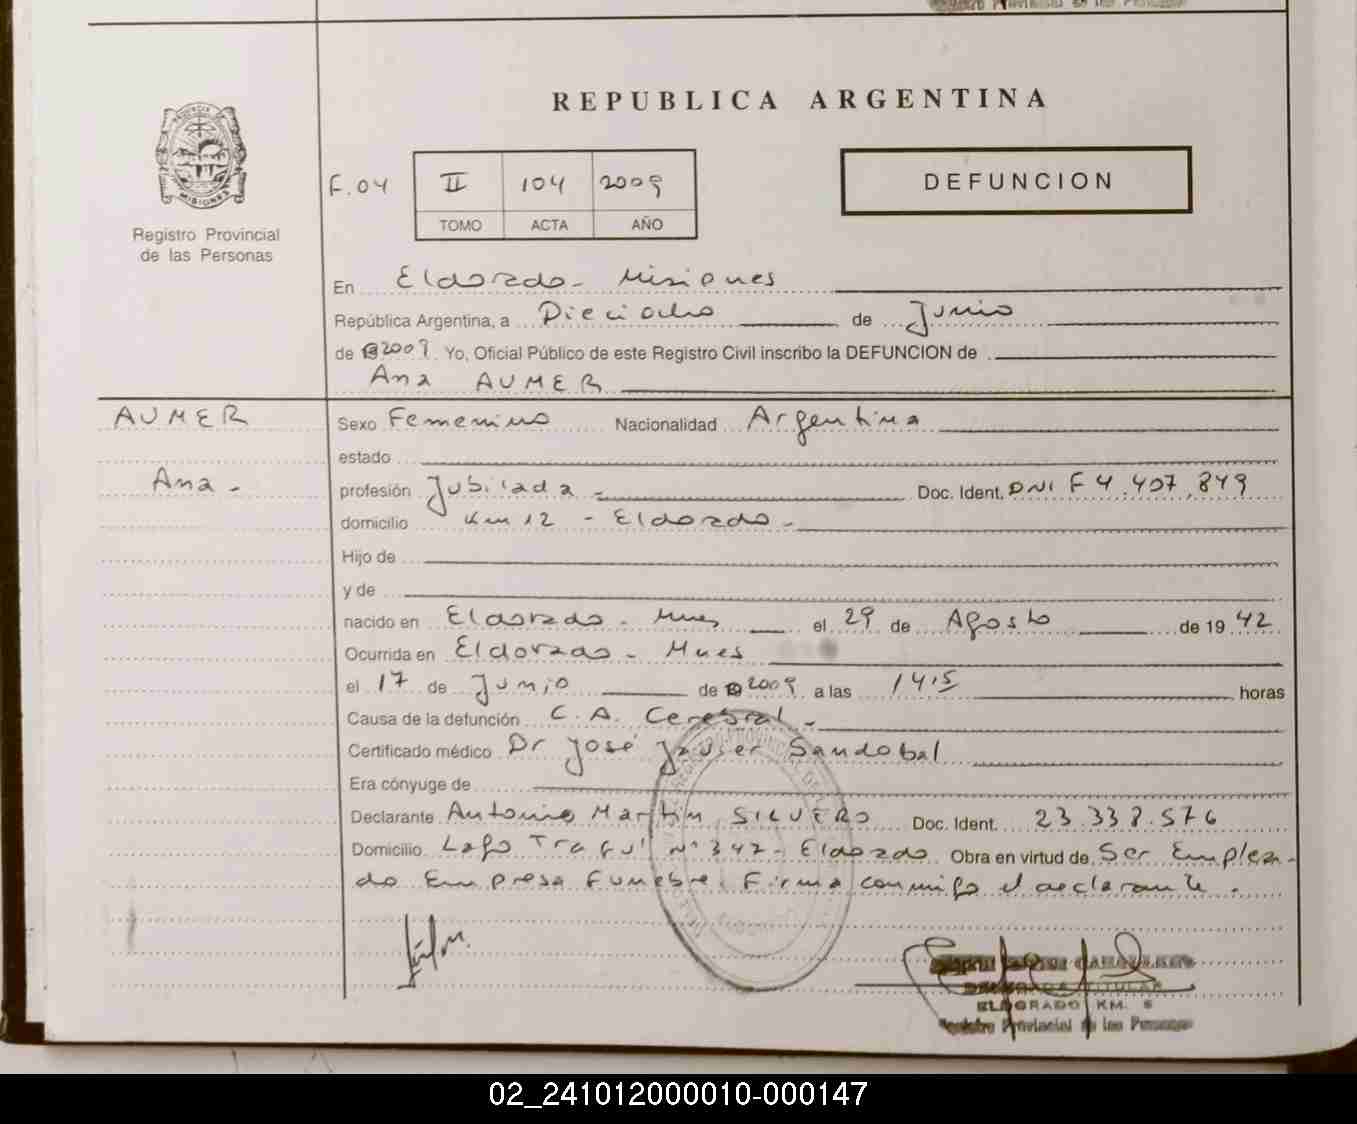 REPUBLICA ARGENTINA
F.04
II 104 2009
TOMO ACTA AÑO
DEFUNCION
MISIONES
Registro Provincial
de las Personas
En Eldorado - Misiones
República Argentina, a Dieciocho de Junio
de 2009 Yo, Oficial Público de este Registro Civil inscribo la DEFUNCION de
Ana AUMER
AUMER
Ana -
Sexo Femenino Nacionalidad Argentina
estado
profesión Jubilada - Doc. Ident. DNI F 4.407.849
domicilio Km 12 - Eldorado -
Hijo de
y de
nacido en Eldorado - Mnes el 29 de Agosto de 19 42
Ocurrida en Eldorado - Mnes
el 17 de Junio de 2009 a las 14.15 horas
Causa de la defunción C. A. Cerebral -
Certificado médico Dr José Javier Sandobal
Era cónyuge de
Declarante Antonio Martin SILVERO Doc. Ident. 23.338.576
Domicilio Lago Traful Nº 347 - Eldorado Obra en virtud de Ser Emplea-
do Empresa Funebre. Firma conmigo el declarante.
DELEGADA TITULAR
ELDORADO KM.
Registro Provincial de las Personas
02_241012000010-000147